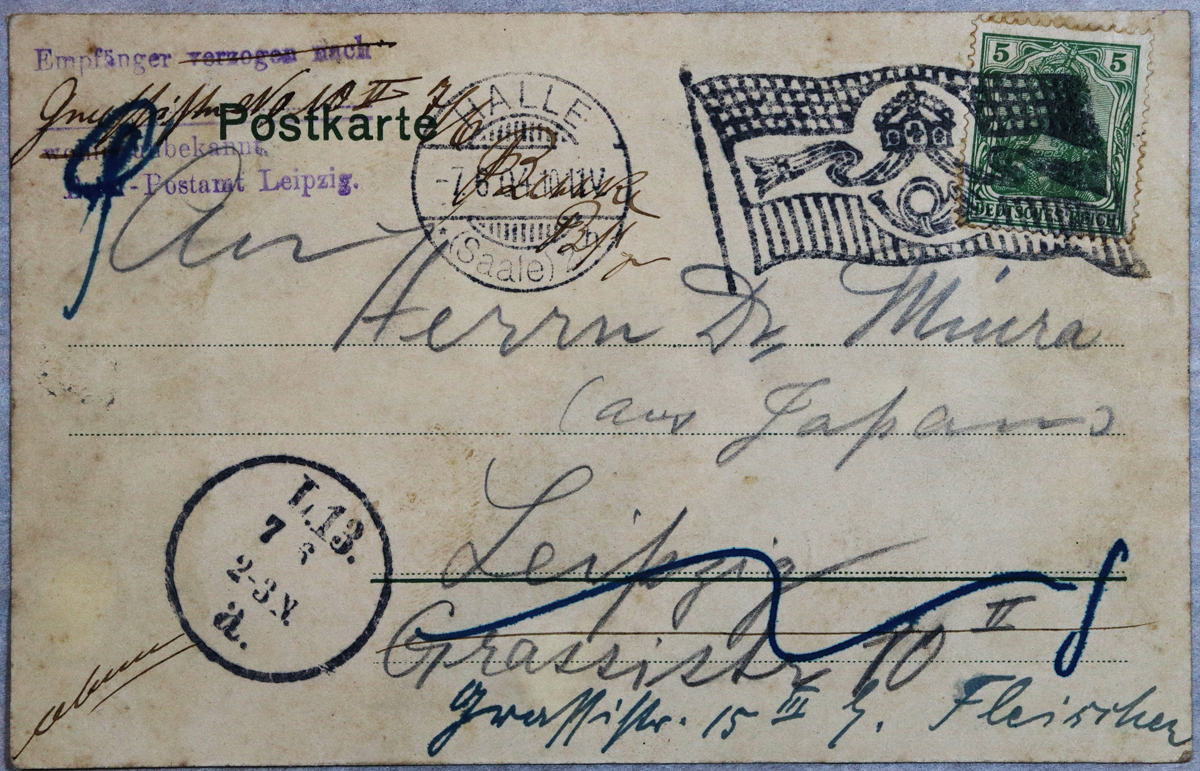 Empfänger verzogen nach
Postkarte
unbekannt.
-Postamt Leipzig.
HALLE
-7.6.04.10-11V
(Saale)
5 5
DEUTSCHES REICH
An
Herrn Dr. Miura
(aus Japan)
Leipzig
Grassistr 10 II
Grassistr. 15 III b. Fleischer
L.13.
7 6
2-3N.
a.
oben